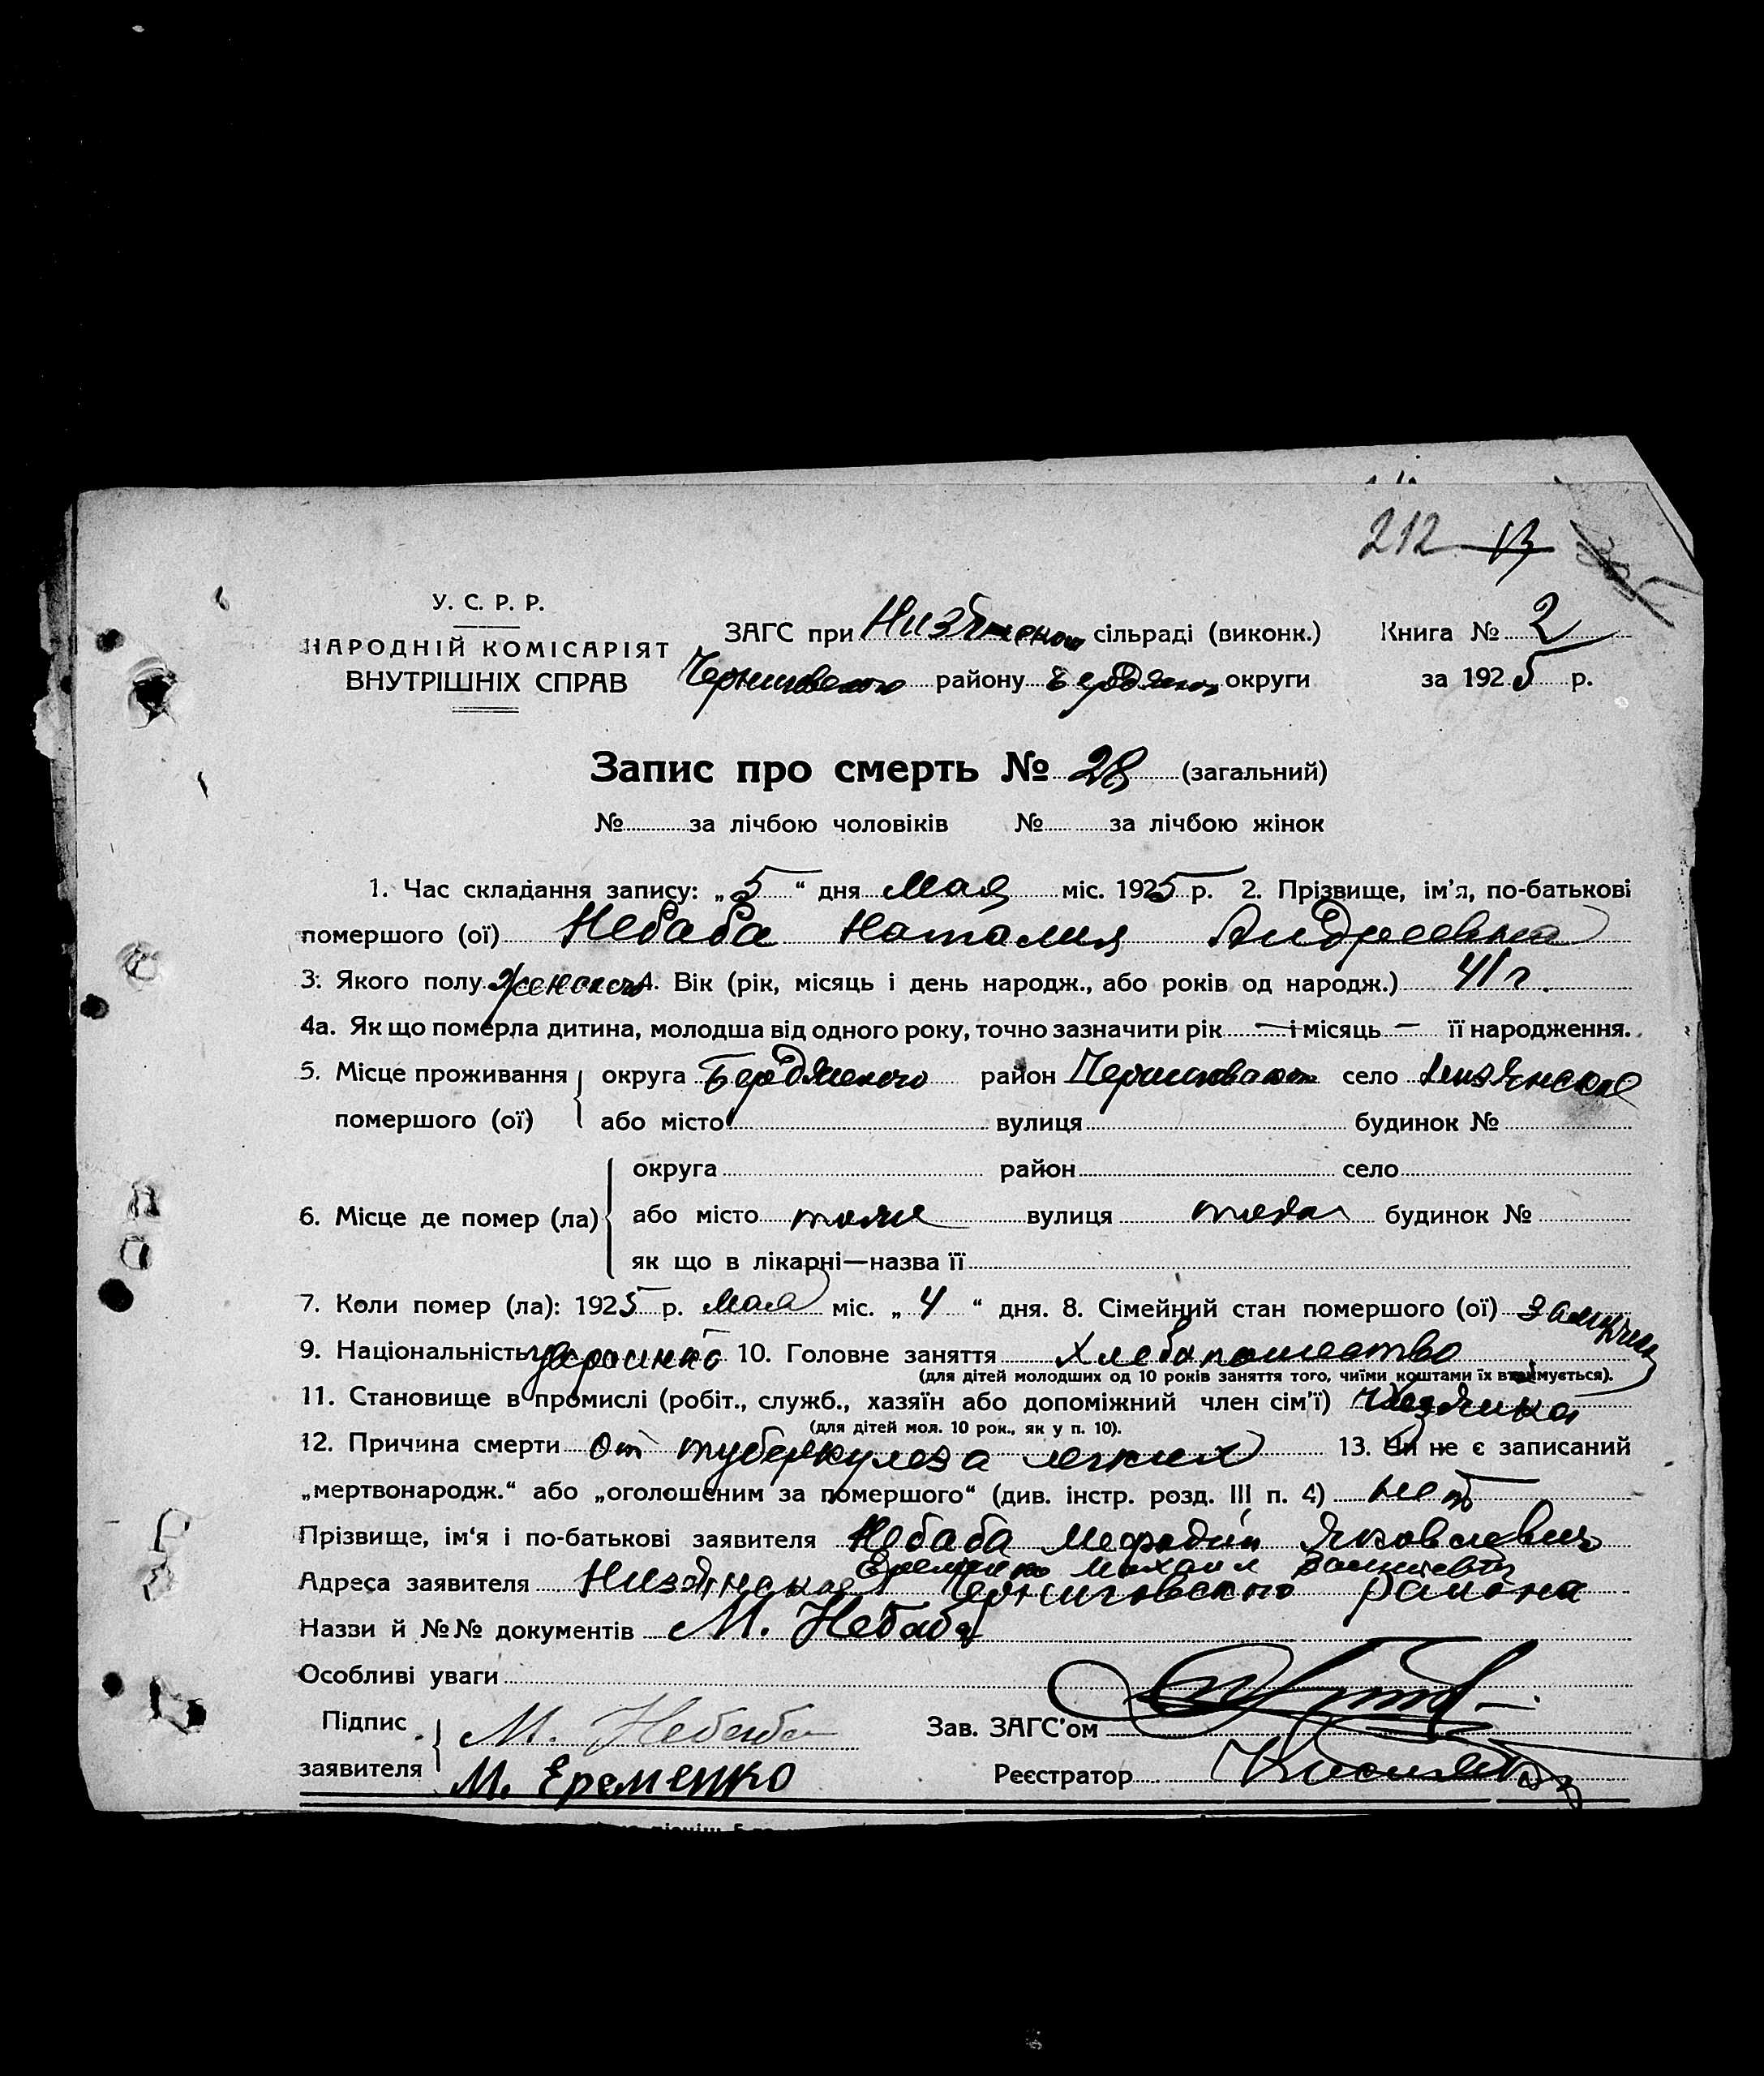 212 13
У. С. Р. Р.
НАРОДНІЙ КОМІСАРІЯТ
ВНУТРІШНІХ СПРАВ
ЗАГС при Низянском сільраді (виконк.) Книга № 2
Черниговского району Бердянской округи за 1925 р.
Запис про смерть № 28 (загальний)
№ за лічбою чоловіків № за лічбою жінок
1. Час складання запису: „5" дня Мая міс. 1925 р. 2. Прізвище, ім'я, по-батькові
помершого (ої) Небаба Наталия Андреевна
3. Якого полу женского 4. Вік (рік, місяць і день народж., або років од народж.) 41 г.
4а. Як що померла дитина, молодша від одного року, точно зазначити рік — і місяць — її народження.
5. Місце проживання округа Бердянского район Черниговского село Низянское
помершого (ої) або місто вулиця будинок №
округа район село
6. Місце де помер (ла) або місто тоже вулиця будинок №
як що в лікарні—назва її
7. Коли помер (ла): 1925 р. Мая міс. „4" дня. 8. Сімейний стан помершого (ої) замужем
9. Національність 10. Головне заняття Хлебопашество
(для дітей молодших од 10 років заняття того, чиїми коштами їх втримується).
11. Становище в промислі (робіт., служб., хазяїн або допоміжний член сім'ї) Хозяйка
(для дітей мол. 10 рок., як у п. 10).
12. Причина смерти От туберкулеза легких 13. Чи не є записаний
„мертвонародж." або „оголошеним за помершого" (див. інстр. розд. III п. 4) нет
Прізвище, ім'я і по-батькові заявителя Небаба Мефодий Яковлевич
Еременко Михаил
Адреса заявителя Низянское Черниговского района
Назви й №№ документів М. Небаба
Особливі уваги
Підпис М. Небаба Зав. ЗАГС'ом
заявителя М. Еременко Реєстратор